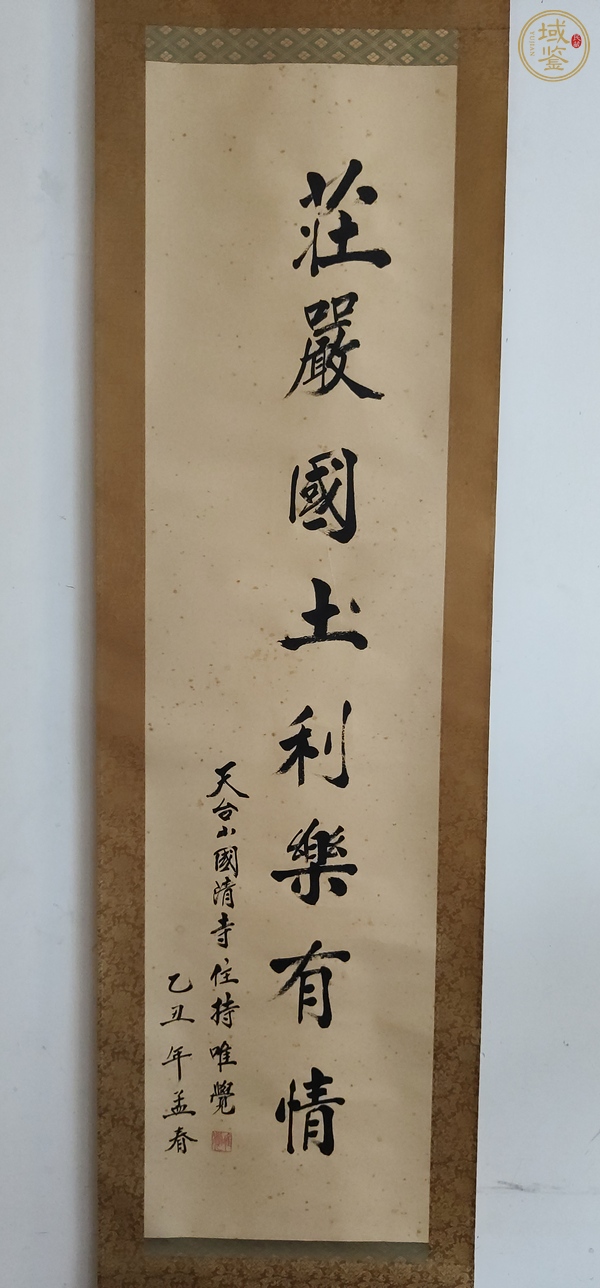 莊嚴國土利樂有情
天台山國清寺住持唯覺
乙丑年孟春
域鉴
YUJIAN